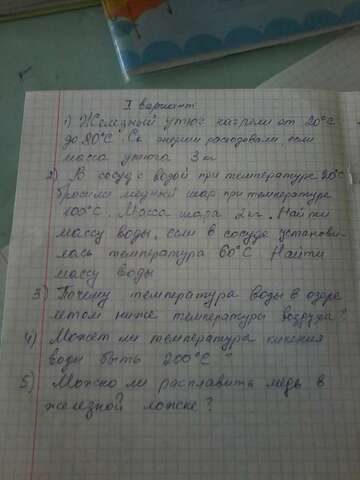 I вариант
1) Железный утюг нагрели от 20°C
до 80°C. Ск. энергии расходовали, если
масса утюга 3 кг
2) В сосуд с водой при температуре 20°C
бросили медный шар при температуре
100°C. Масса шара 2 кг. Найти
массу воды, если в сосуде установи-
лась температура 60°C. Найти
массу воды
3) Почему температура воды в озере
летом ниже температуры воздуха?
4) Может ли температура кипения
воды быть 200°C?
5) Можно ли расплавить медь в
железной ложке?